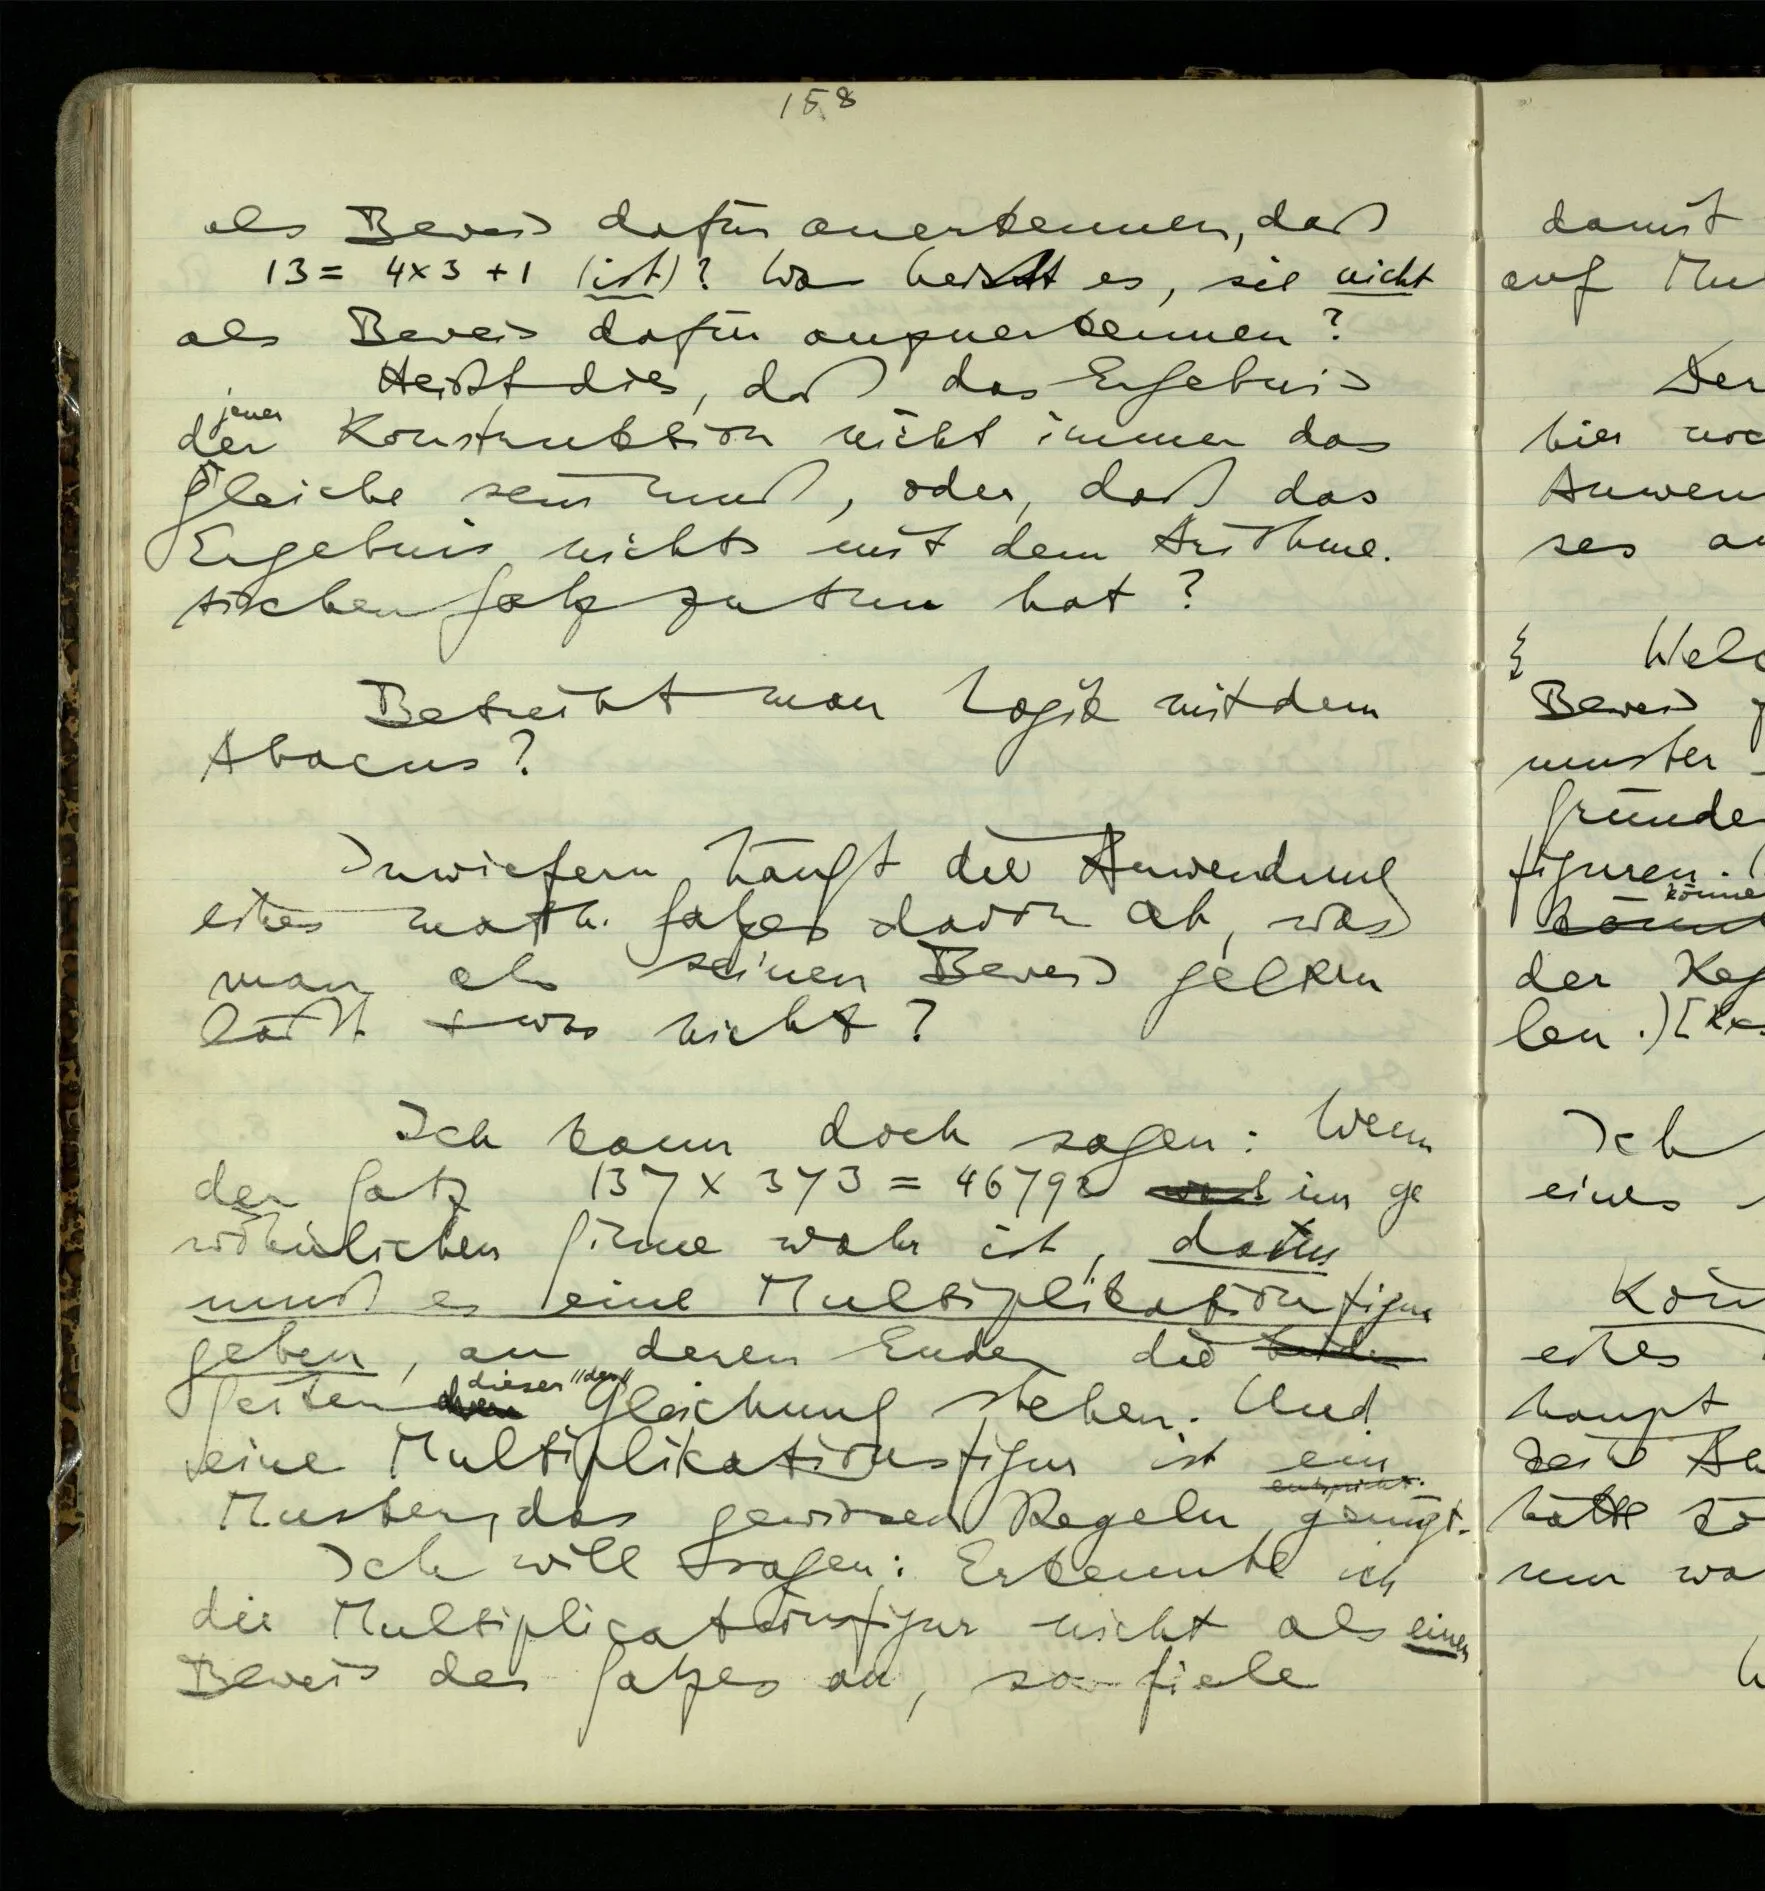 158
als Beweis dafür anerkennen, daß
13 = 4×3 +1 (ist)? Was heißt es, sie nicht
als Beweis dafür anzuerkennen?
Heißt dies, daß das Ergebnis
jener
der Konstruktion nicht immer das
gleiche sein muß, oder, daß das
Ergebnis nichts mit dem Arithme-
tischen Satz zu tun hat?
Betreibt man Logik mit dem
Abacus?
Inwiefern hängt die Anwendung
eines math. Satzes davon ab, was
man als seinen Beweis gelten
läßt + was nicht?
Ich kann doch sagen: Wenn
der Satz 137 × 373 = 46792 im ge
wöhnlichen Sinne wahr ist, dann
muß es eine Multiplikationsfigur
geben, an deren Enden die beiden
dieser "der"
Seiten Gleichung stehen. Und
eine Multiplikationsfigur ist ein
entspricht.
Muster, das gewissen Regeln genügt.
Ich will sagen: Erkennte ich
die Multiplicationsfigur nicht als einen
Beweis des Satzes an, so fiele
damit
auf
Der
hier
Anwen
ses
Beweis
muster
gründe
figuren.
könne
der Reg
len.)
Ich
eines
eines
haupt
hätte
nur wa